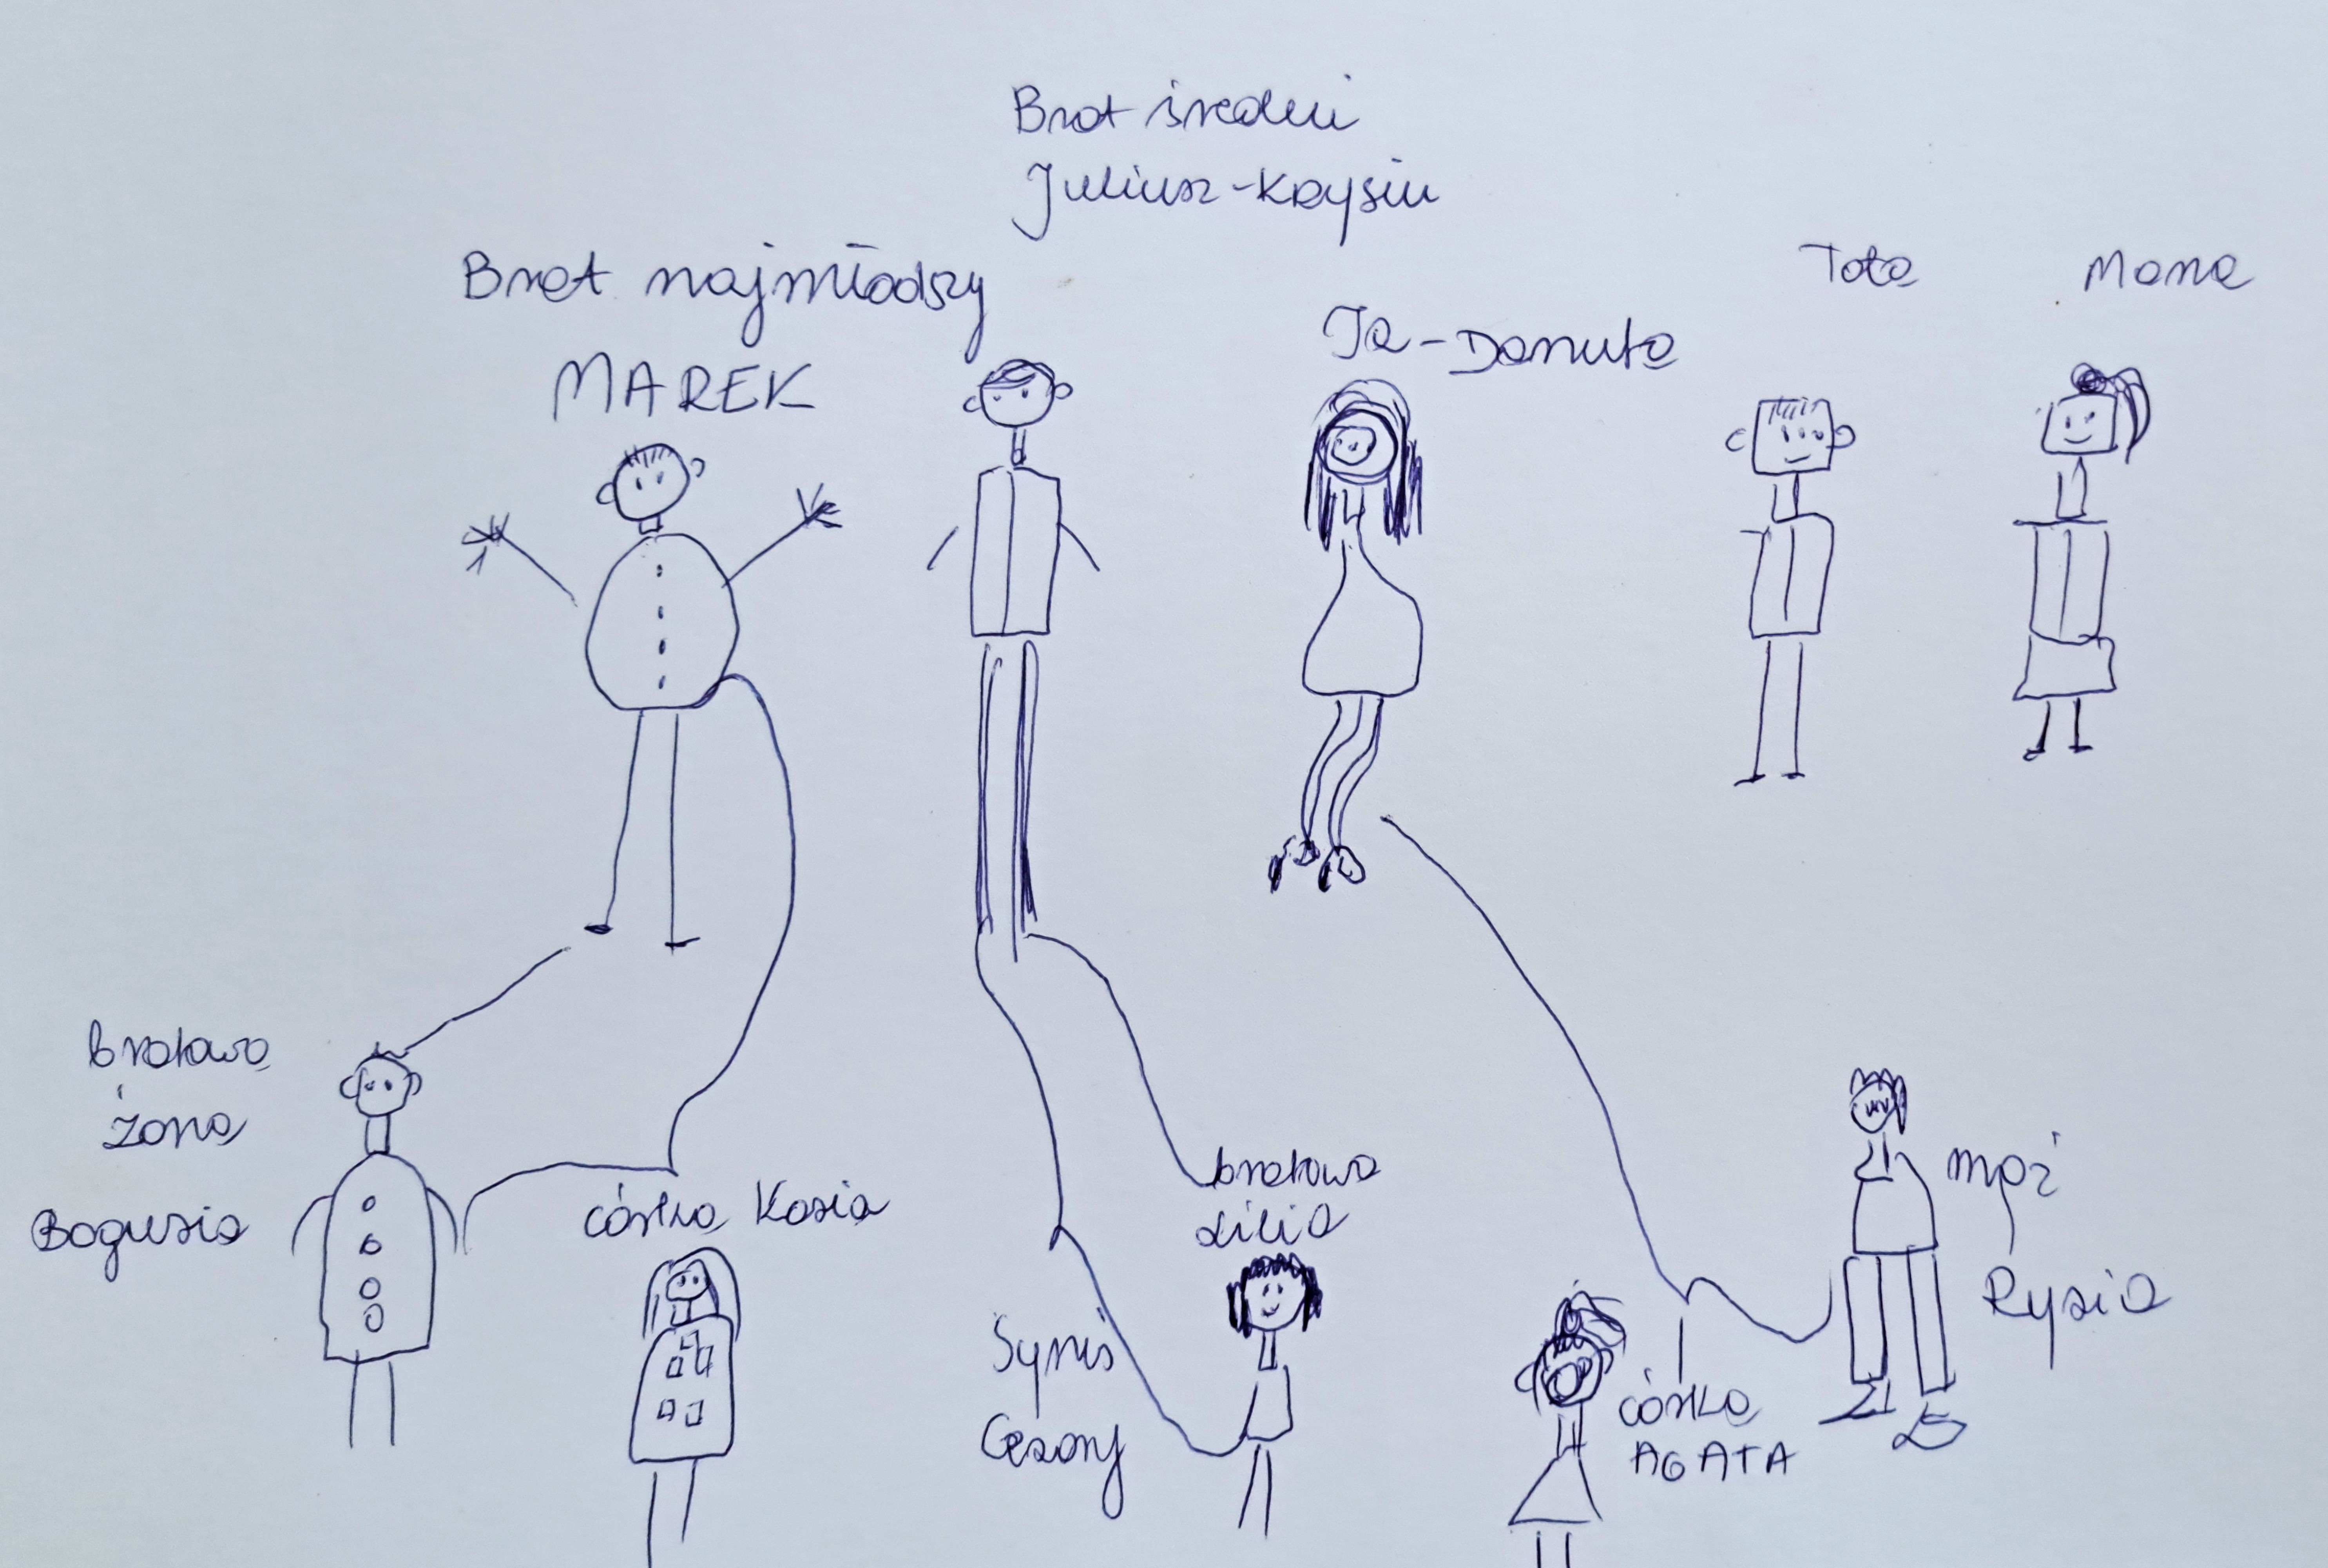 Brat średni
Juliusz-Krysiu
Brat najmłodszy
MAREK
Ja-Danuta
Tata
Mama
bratowa
żona
Bogusia
córka Kasia
bratowa
Lilia
Syniś
Cezary
córka
AGATA
mąż
Rysio